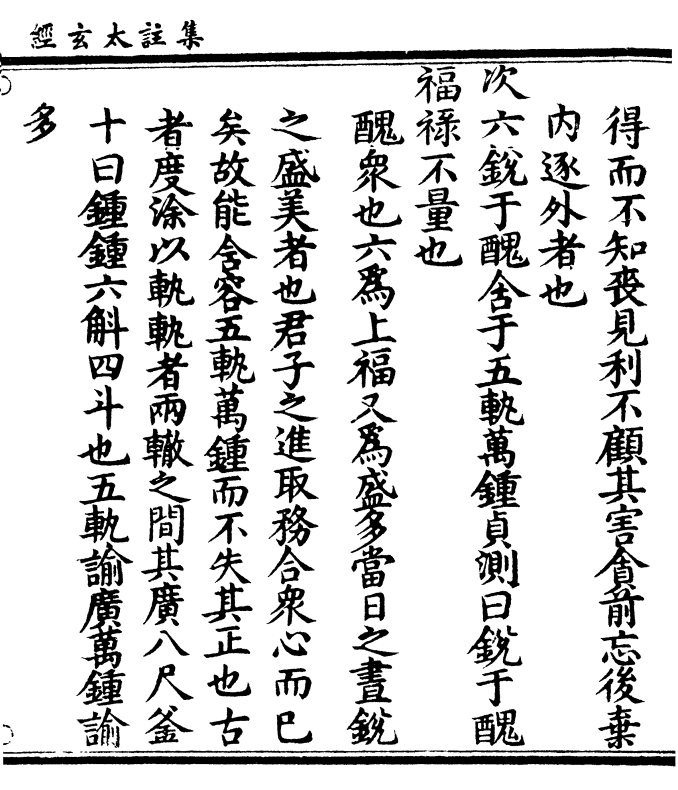 集註太玄經
得而不知喪見利不顧其害貪前忘後棄
内逐外者也
次六銳于醜含于五軌萬鍾貞測曰銳于醜
福祿不量也
醜衆也六爲上福又爲盛多當日之晝銳
之盛美者也君子之進取務合衆心而已
矣故能含容五軌萬鍾而不失其正也古
者度涂以軌軌者兩轍之間其廣八尺釜
十曰鍾鍾六斛四斗也五軌諭廣萬鍾諭
多